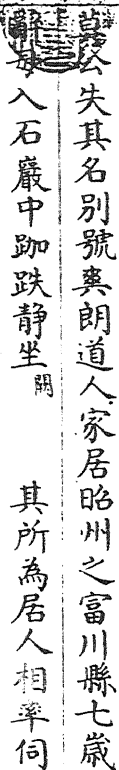 公失其名別號爽朗道人家居昭州之富川縣七歲
辭母入石巖中跏趺静坐闕　其所為居人相率伺